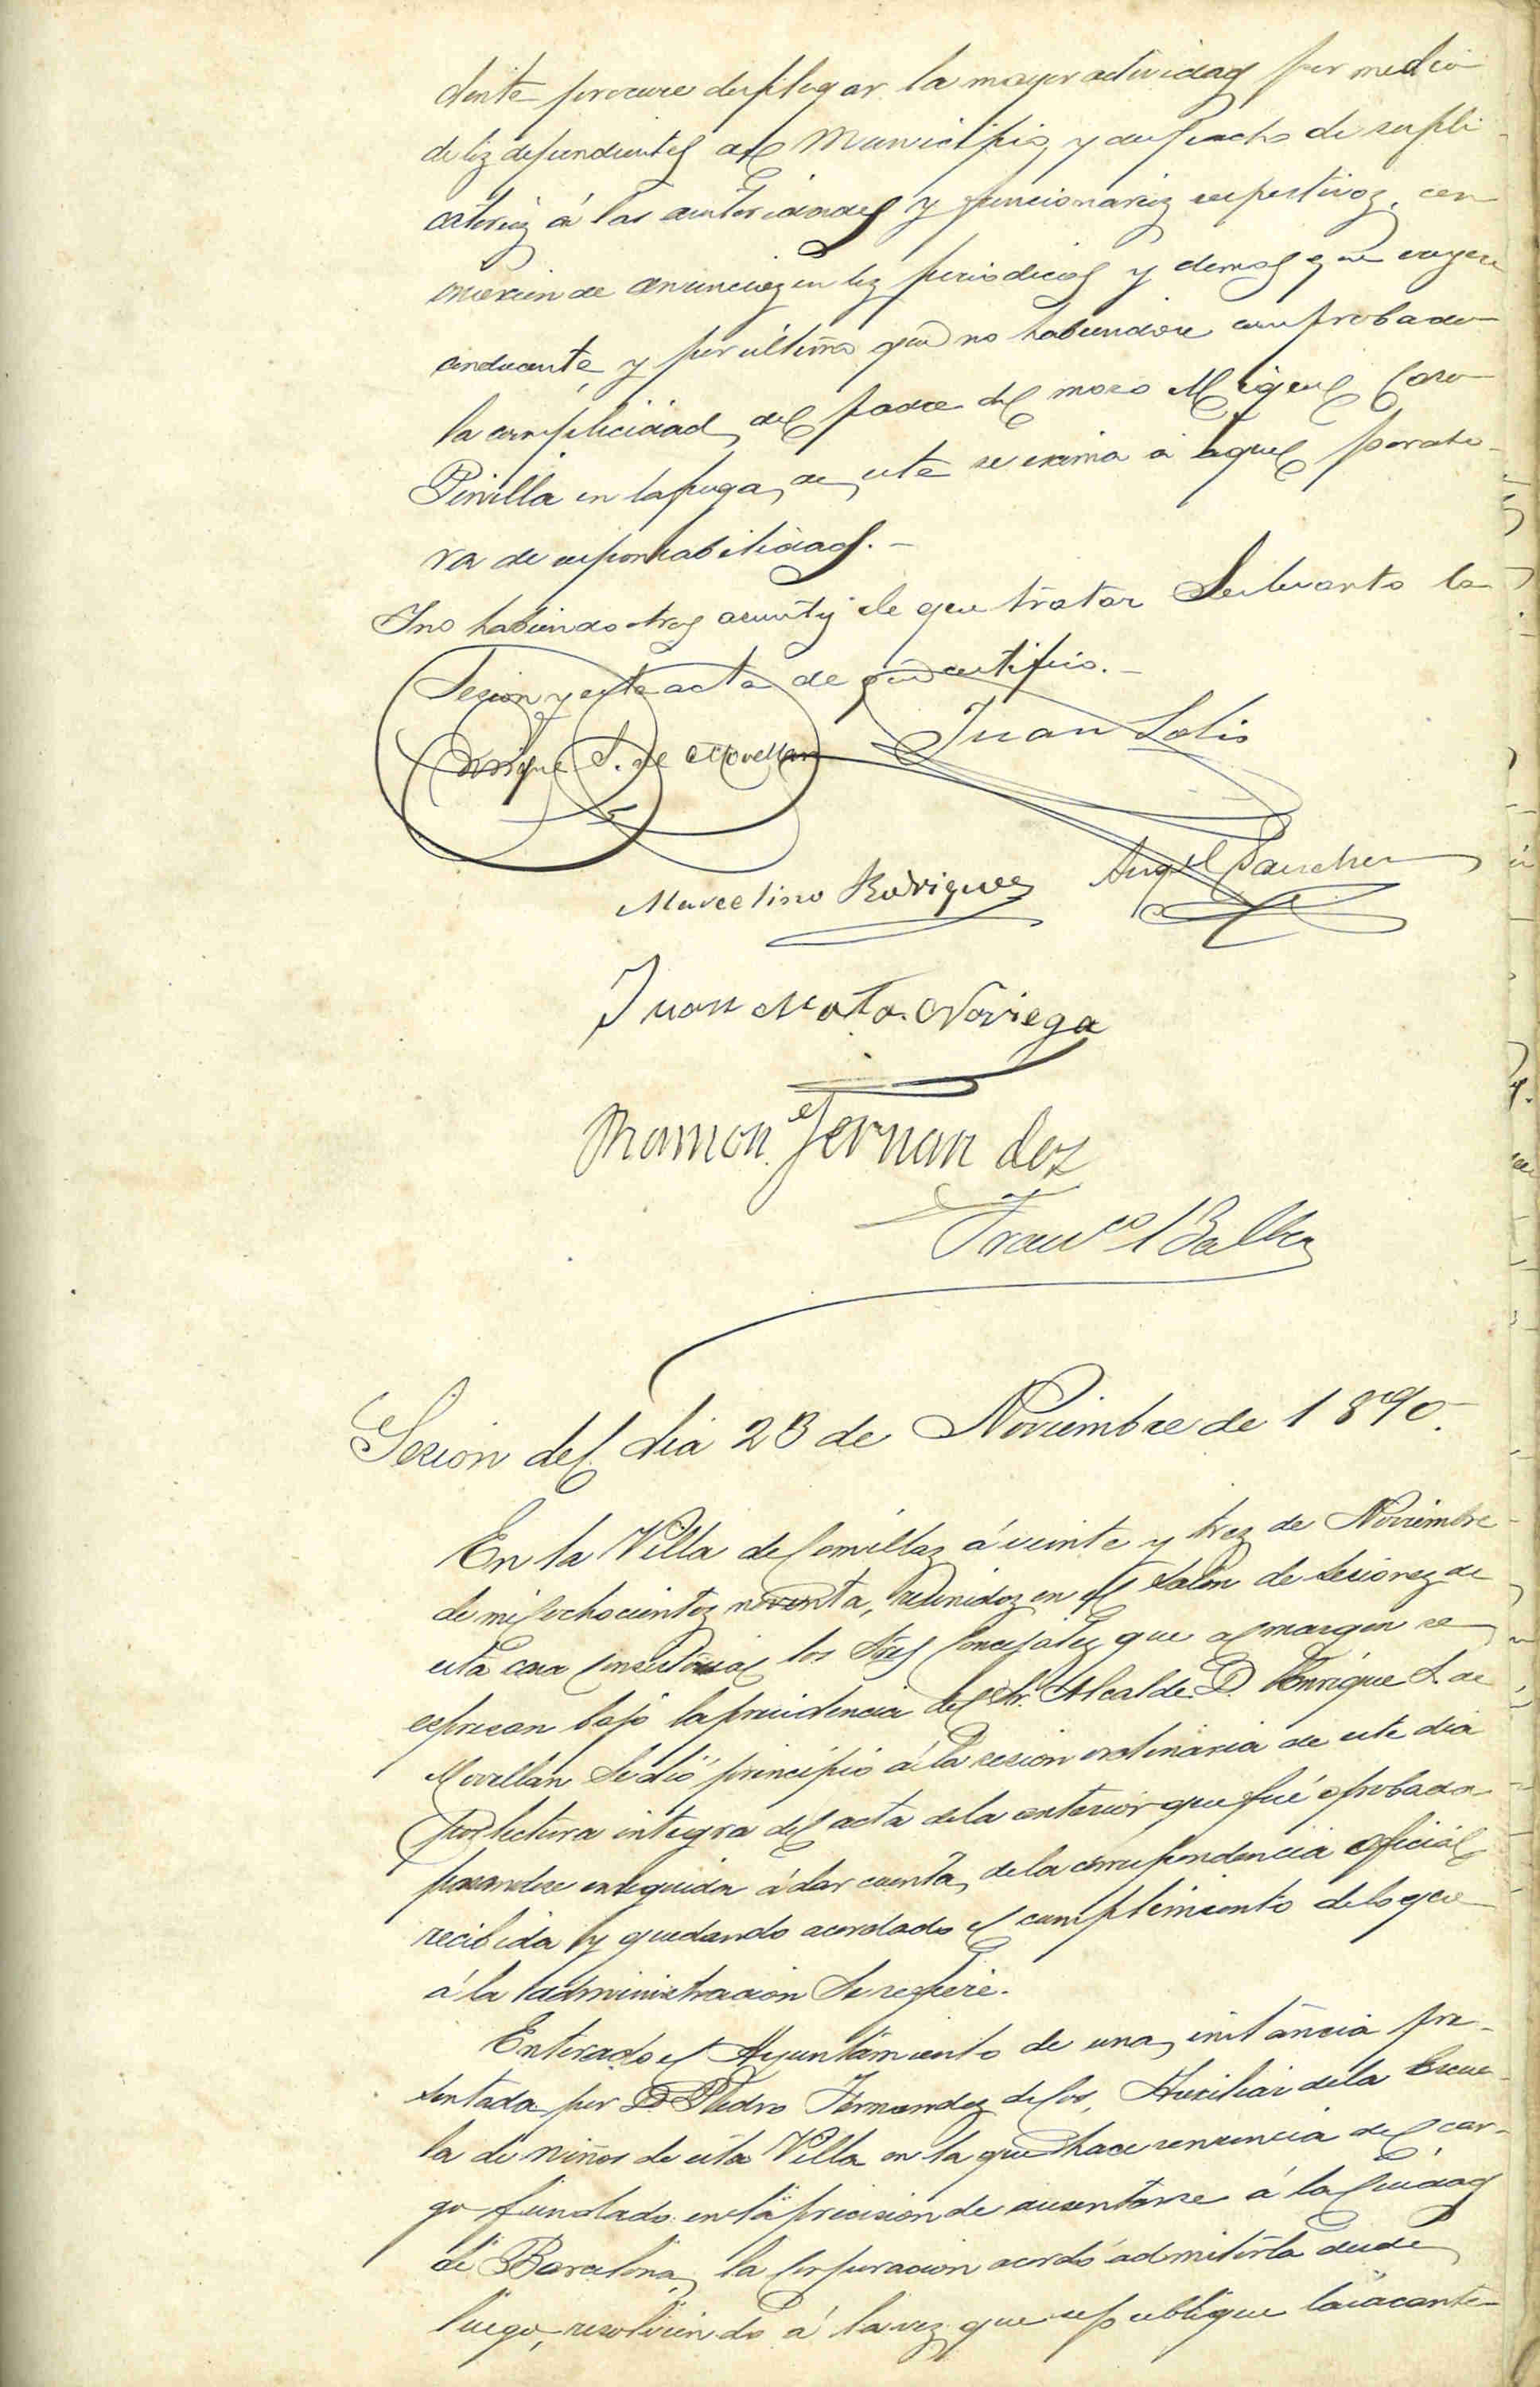 dente procure desplegar la mayor actividad por medio
de los dependientes del Municipio, y despacho de supli
catorios á las autoridades y funcionarios respectivos,
de anuncios en los periodicos y demas que
conducente, y por último que no habiendose comprobado
la complicidad del padre del mozo Miguel Caso
Pinilla en la fuga de este se exima á aquel
de responsabilidad.-
Y no habiendo otros asuntos de que tratar Se levanto la
Sesion y esta acta de que certifico.-
Enrique S. de Movellan Juan Solis
Marcelino Rodriguez Angel Sanchez
Juan Mata Noriega
Ramon Fernandez
Franco Balber
Sesion del dia 23 de Noviembre de 1890.
En la Villa de Comillas á veinte y tres de Noviembre
de mil ochocientos noventa, reunidos en el Salon de Sesiones de
esta casa Consistorial los Sres Concejales que al margen se
espresan bajo la presidencia del Sr. Alcalde D. Enrique S. de
Movellan Se dió principio á la sesion ordinaria de este dia
por lectura integra del acta de la anterior que fué aprobada
pasandose enseguida á dar cuenta de la correspondencia oficial
recibida y quedando acordado el cumplimiento de lo que
á la administracion Se refiere.
Enterado el Ayuntamiento de una instancia pre-
sentada por D. Pedro Fernandez de Cos, Auxiliar de la Escue-
la de niños de esta Villa en la que hace renuncia del car-
go fundado en la precision de ausentarse á la Ciudad
de Barcelona, la Corporacion acordó admitirla desde
luego, resolviendo á la vez que se publique la vacante